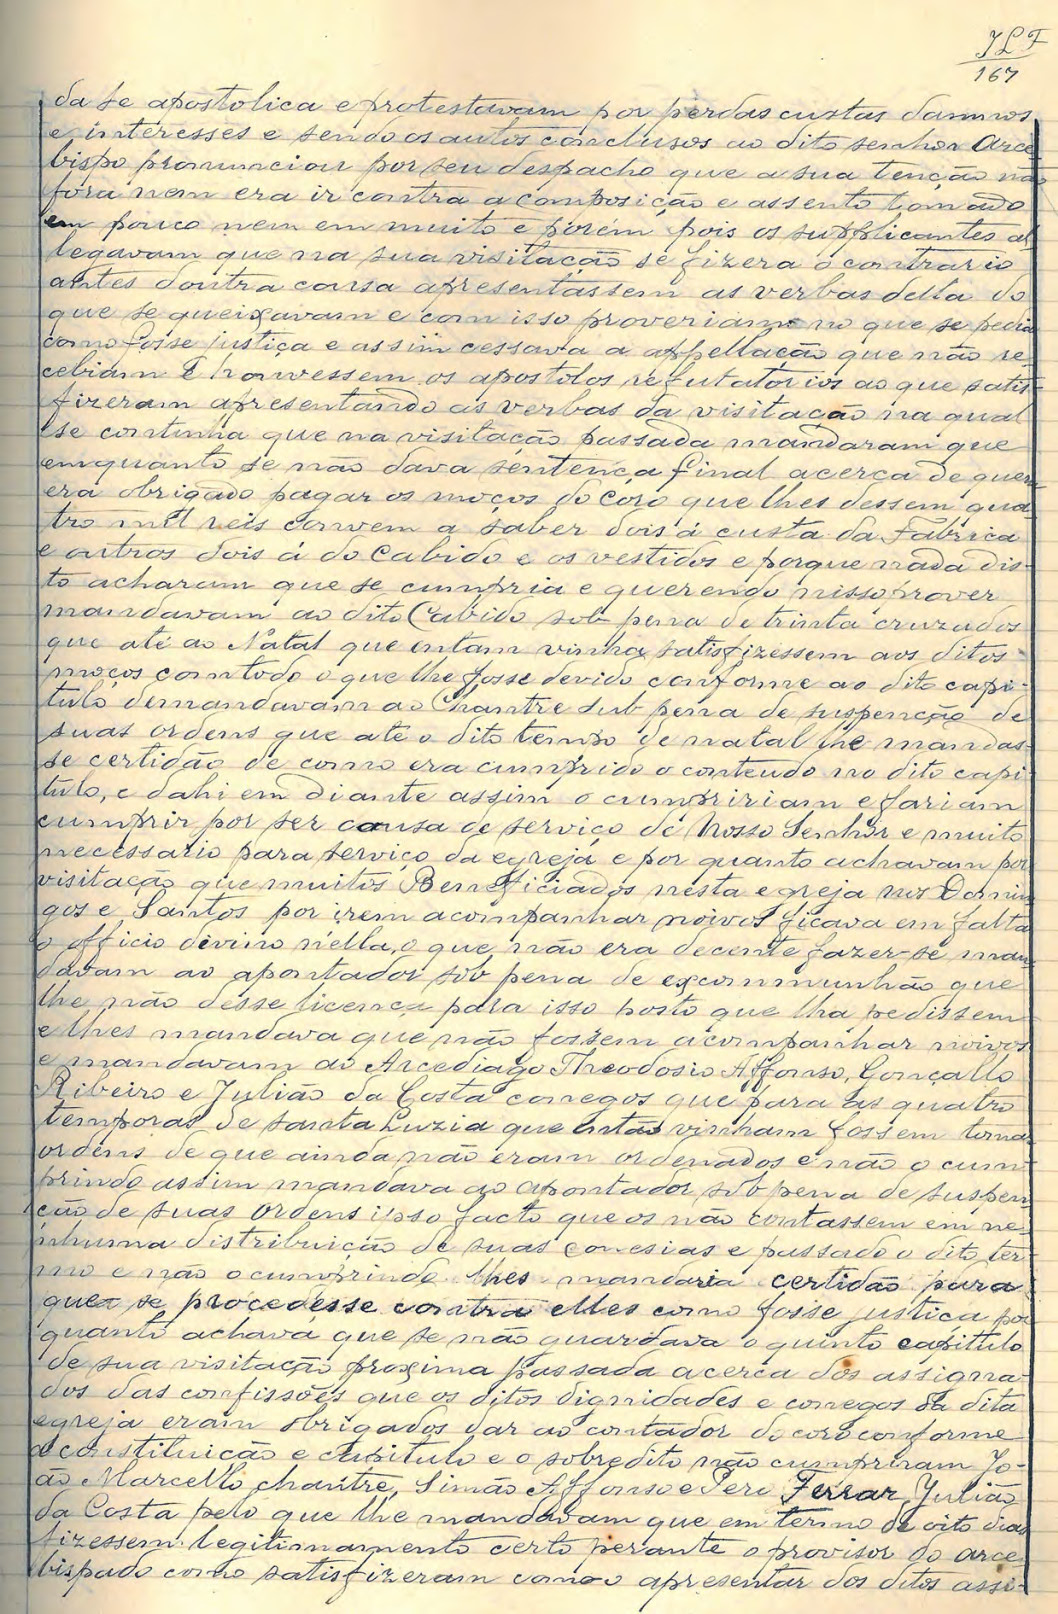 JLF
167
da se apostolica e protestavam por perdas custas damnos
e interesses e sendo os autos conclusos ao dito senhor Arce
bispo pronunciou por seu despacho que a sua tenção não
fora nem era ir contra a composição e assento tomado
em pouco nem em muito e porém pois os supplicantes al
legavam que na sua visitação se fizera o contrario
antes doutra cousa apresentassem as verbas della do
que se queixavam e com isso proveriam no que se pedia
como fosse justiça e assim cessava a appellação que não re
cebiam E houvessem os apostolos refutatorios ao que satis
fizeram apresentando as verbas da visitação na qual
se continha que na visitação passada mandaram que
emquanto se não dava sentença final acerca de quem
era obrigado pagar os moços do coro que lhes dessem qua
tro mil reis convem a saber dois á custa da Fabrica
e outros dois á do Cabido e os vestidos e porque nada dis
to acharam que se cumpria e querendo nisso prover
mandavam ao dito Cabido sob pena de trinta cruzados
que até ao Natal que entam vinha satisfizessem aos ditos
moços com todo o que lhe fosse devido conforme ao dito capi-
tulo demandavam ao Chantre sub pena de suspenção de
suas ordens que até o dito tempo de natal lhe mandas
se certidão de como era cumprido o conteudo no dito capi
tulo, e dahi em diante assim o cumpririam e fariam
cumprir por ser causa de serviço de Nosso Senhor e muito
necessario para serviço da egreja e por quanto achavam por
visitação que muitos Beneficiados nesta egreja nos Domin
gos e Santos por irem acompanhar noivos ficava em falta
o officio divino n'ella, o que não era decente fazer-se man
davam ao apontador sob pena de excommunhão que
lhe não desse licença para isso posto que lha pedissem
e lhes mandava que não fossem acompanhar noivos
e mandavam ao Arcediago Theodosio Affonso, Gonçallo
Ribeiro e Julião da Costa conegos que para as quatro
temporas de santa Luzia que então vinham fossem tomar
ordens de que ainda não eram ordenados e não o cum
prindo assim mandava ao apontador sob pena de suspen
ção de suas ordens ipso facto que os não contassem em ne
nhuma distribuição de suas conesias e passado o dito ter
mo e não o cumprindo lhes mandaria certidão para
que se procedesse contra elles como fosse justiça por
quanto achava que se não guardava o quinto capitulo
de sua visitação proxima passada acerca dos assigna
dos das confissões que os ditos dignidades e conegos da dita
egreja eram obrigados dar ao contador do coro conforme
a constituição e capitulo e o sobredito não cumpriram Jo-
ão Marcello chantre, Simão Affonso e Pero Ferrar Julião
da Costa pelo que lhe mandavam que em termo de oito dias
fizessem legitimamente certo perante o provisor do arce
bispado como satisfizeram com o apresentar dos ditos assi-